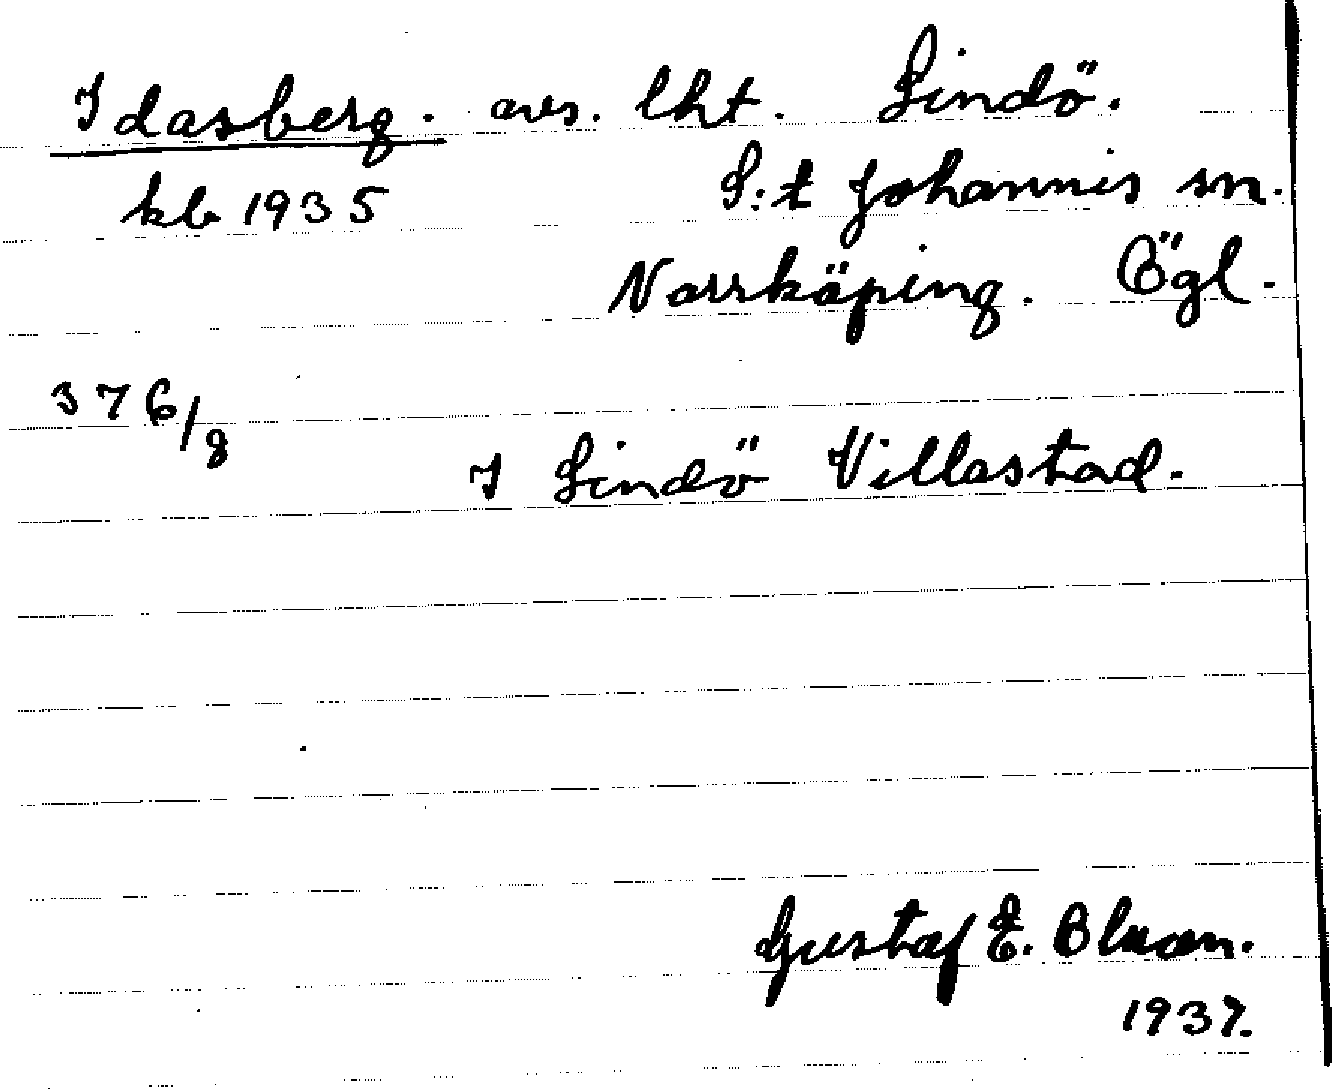 Idasberg. avs. lht. Lindö.
kb 1935 S:t Johannis sn.
Norrköping. Ögl.
376/8
I Lindö Villastad.
Gustaf E.
1937.